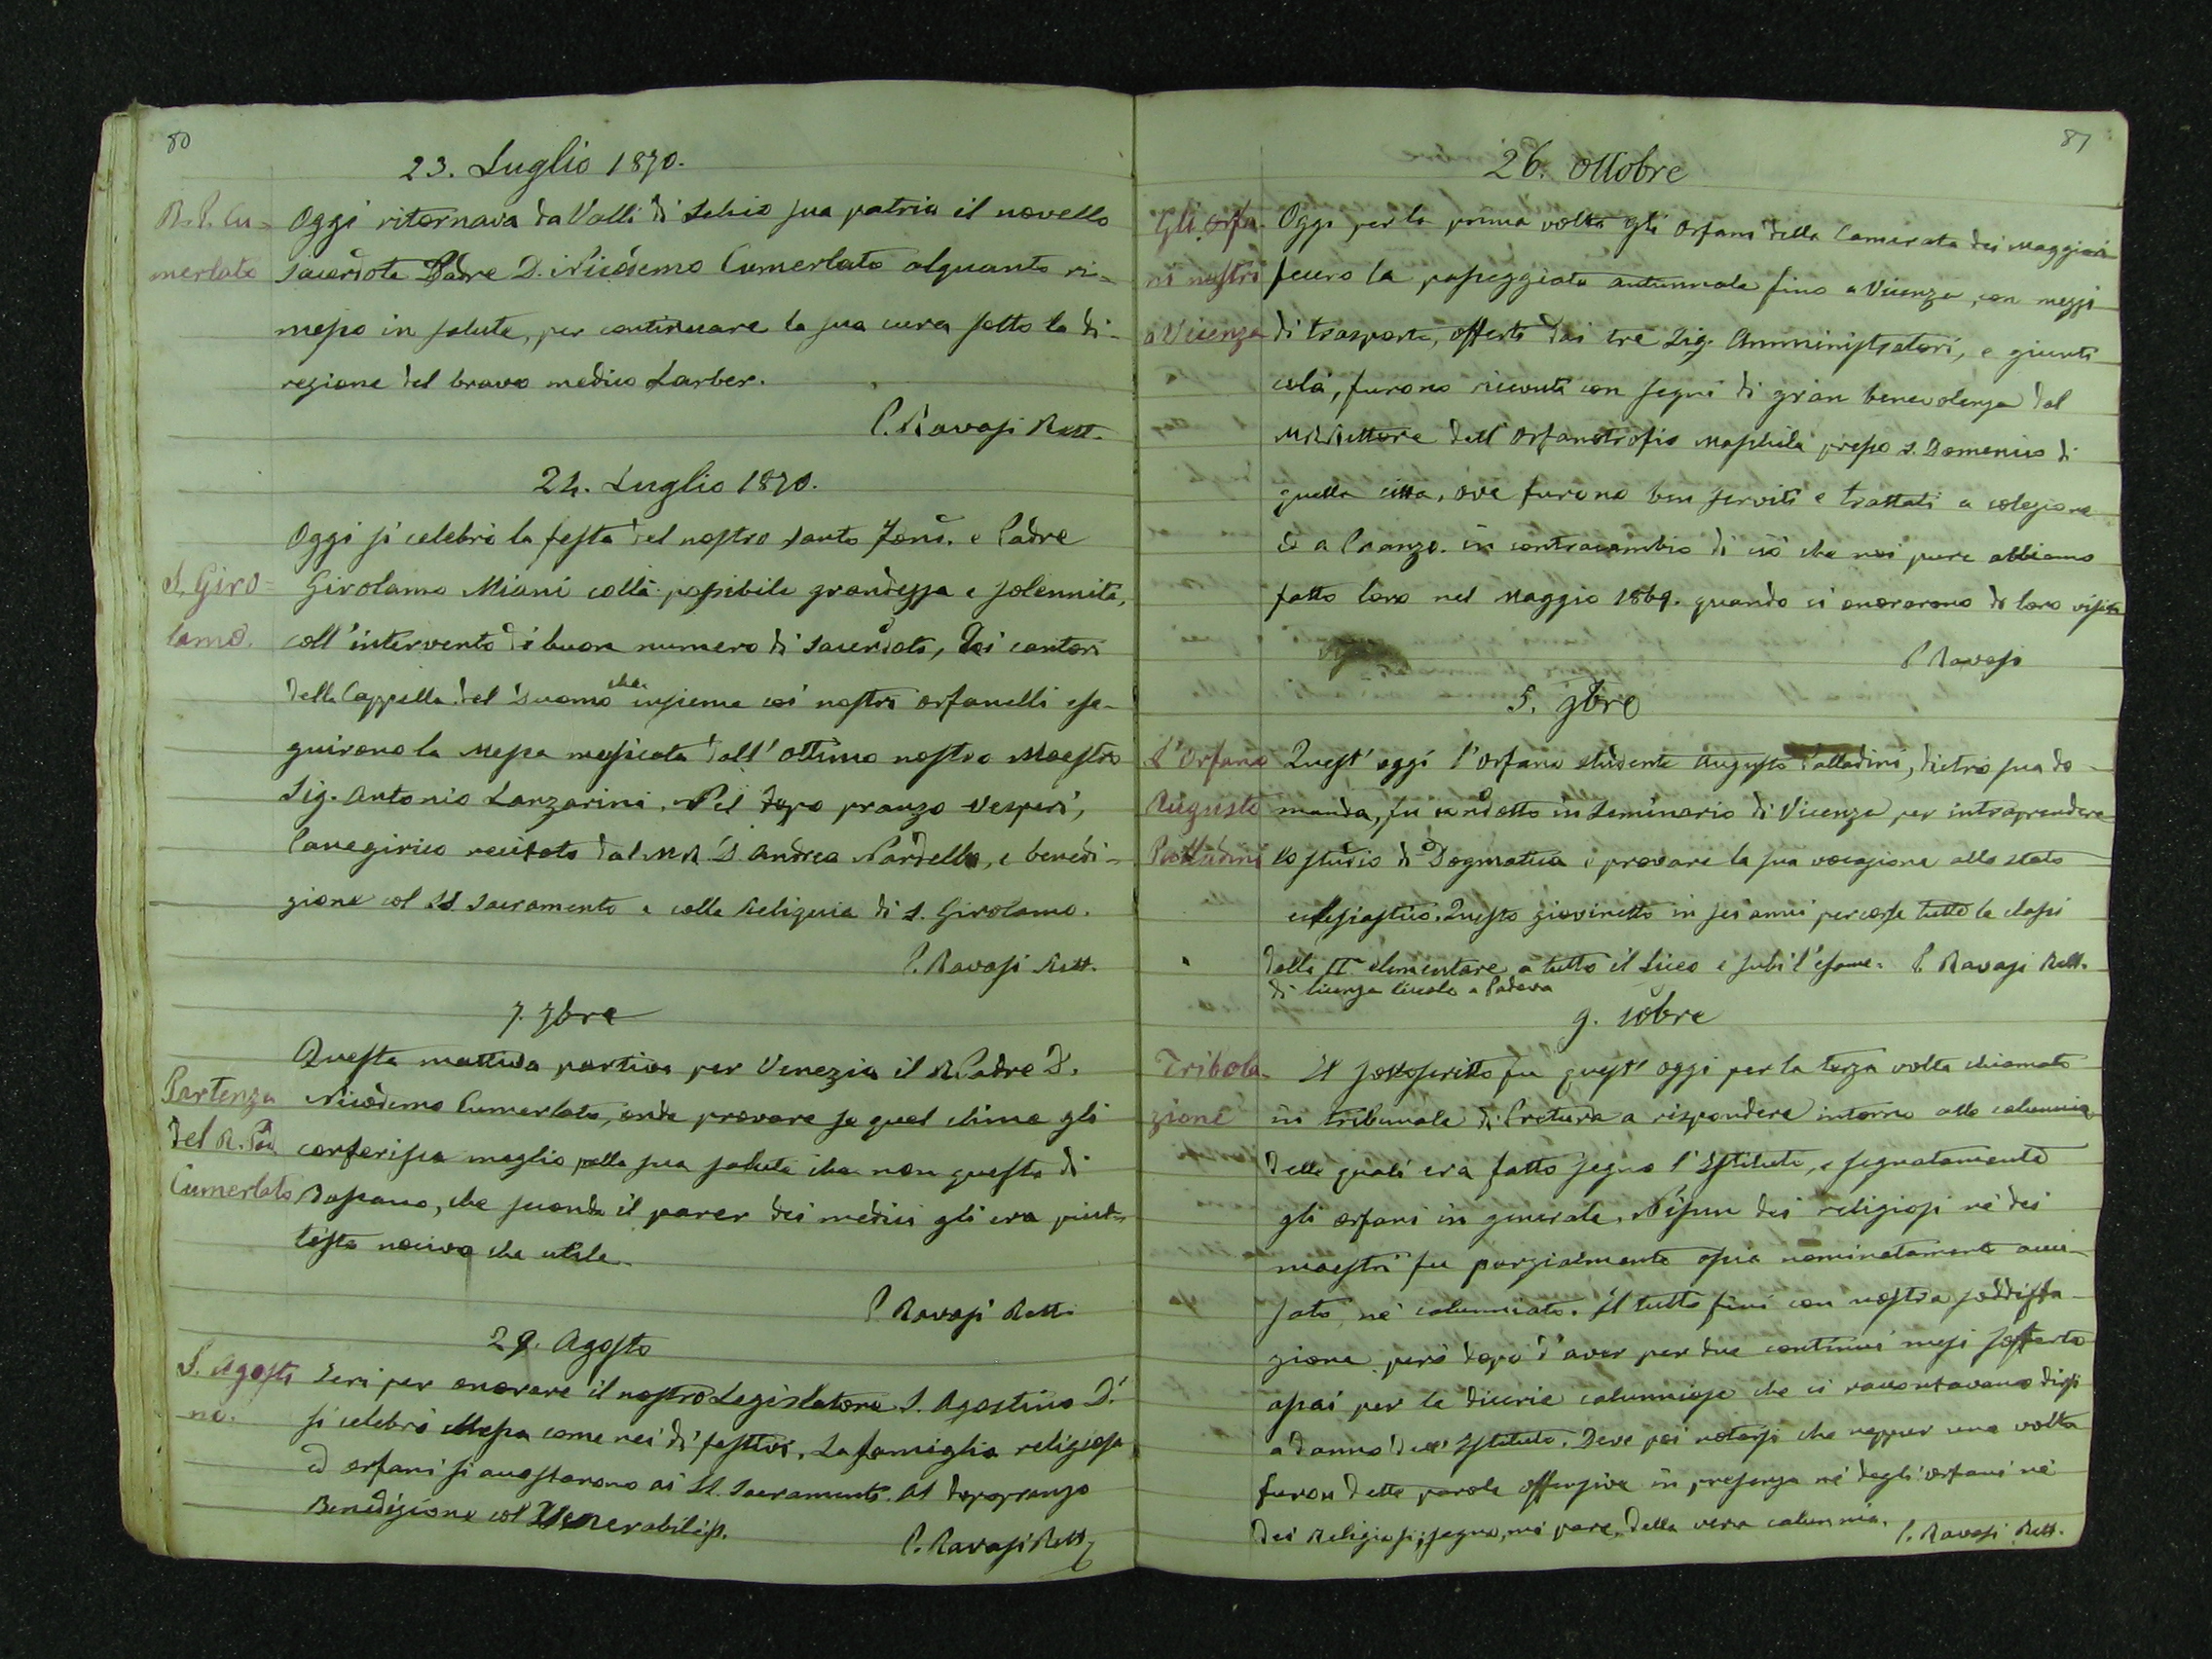 80
23. Luglio 1870.
R. P. Cu-
merlato
Oggi ritornava da Valli di Schio sua patria il novello
sacerdote Padre D. Nicodemo Cumerlato alquanto ri-
messo in salute, per continuare la sua cura sotto la di-
rezione del bravo medico Larber.
P. Ravasi Rett.
24. Luglio 1870.
S. Giro-
lamo.
Oggi si celebrò la festa del nostro santo Fond. e Padre
Girolamo Miani colla possibile grandezza e solennità,
coll'intervento di buon numero di sacerdoti, dei cantori
della Cappella del Duomo che insieme coi nostri orfanelli ese-
guirono la Messa musicata dall'ottimo nostro Maestro
Sig. Antonio Lanzarini. Nel dopo pranzo Vesperi,
Panegirico recitato dal M.R. D. Andrea Nardello, e benedi-
zione col SS Sacramento e colla Reliquia di S. Girolamo.
P. Ravasi Rett.
7. 9bre
Partenza
del R. Pad
Cumerlato
Questa mattina partiva per Venezia il R. Padre D.
Nicodemo Cumerlato, onde provare se quel clima gli
conferisca meglio nella sua salute che non questo di
Bassano, che secondo il parer dei medici gli era piut-
tosto nocivo che utile.
P. Ravasi Rett.
29. Agosto
S. Agosti
no.
Ieri per onorare il nostro Legislatore S. Agostino D.
si celebrò Messa come nei dì festivi. La famiglia religiosa
ed orfani si accostarono ai SS. Sacramenti. Al dopopranzo
Benedizione col Venerabiliss.
P. Ravasi Rett
81
26. Ottobre
Gli orfa-
ni nostri
a Vicenza
Oggi per la prima volta gli Orfani della Camerata dei Maggiori
fecero la passeggiata autunnale fino a Vicenza, con mezzi
di trasporto, offerti dai tre Sig. Amministratori, e giunti
colà, furono ricevuti con segni di gran benevolenza dal
M.R. Rettore dell'Orfanotrofio Maschile presso S. Domenico di
quella città, ove furono ben serviti e trattati a colezione
ed a Pranzo. in contracambio di ciò che noi pure abbiamo
fatto loro nel Maggio 1869. quando ci onorarono di loro visita
P Ravasi
5. 9bre
L'Orfano
Augusto
Palladini
Quest'oggi l'Orfano studente Augusto Palladini, dietro sua do-
manda, fu condotto in Seminario di Vicenza per intraprendere
lo studio di Dogmatica e provare la sua vocazione allo stato
eclesiastico. Questo giovinetto in sei anni percorse tutte le classi
dalla II elementare a tutto il Liceo e subì l'esame. P. Ravasi Rett.
di licenza liceale a Padova
9. 10bre
Tribola-
zione
Il sottoscritto fu quest'oggi per la terza volta chiamato
in tribunale di Pretura a rispondere intorno alle calunnie
delle quali era fatto segno l'Istituto, e segnatamente
gli orfani in generale. Nissun dei religiosi nè dei
maestri fu parzialmente ossia nominatamente accu-
sato, nè calunniato. Il tutto finì con nostra soddisfa-
zione però dopo d'aver per due continui mesi sofferto
assai per le dicerie calunniose che si raccontavano
a danno dell'Istituto. Deve poi notarsi che neppur una volta
furon dette parole offensive in presenza nè degli orfani nè
dei Religiosi; segno, mi pare, della vera calunnia. P. Ravasi Rett.